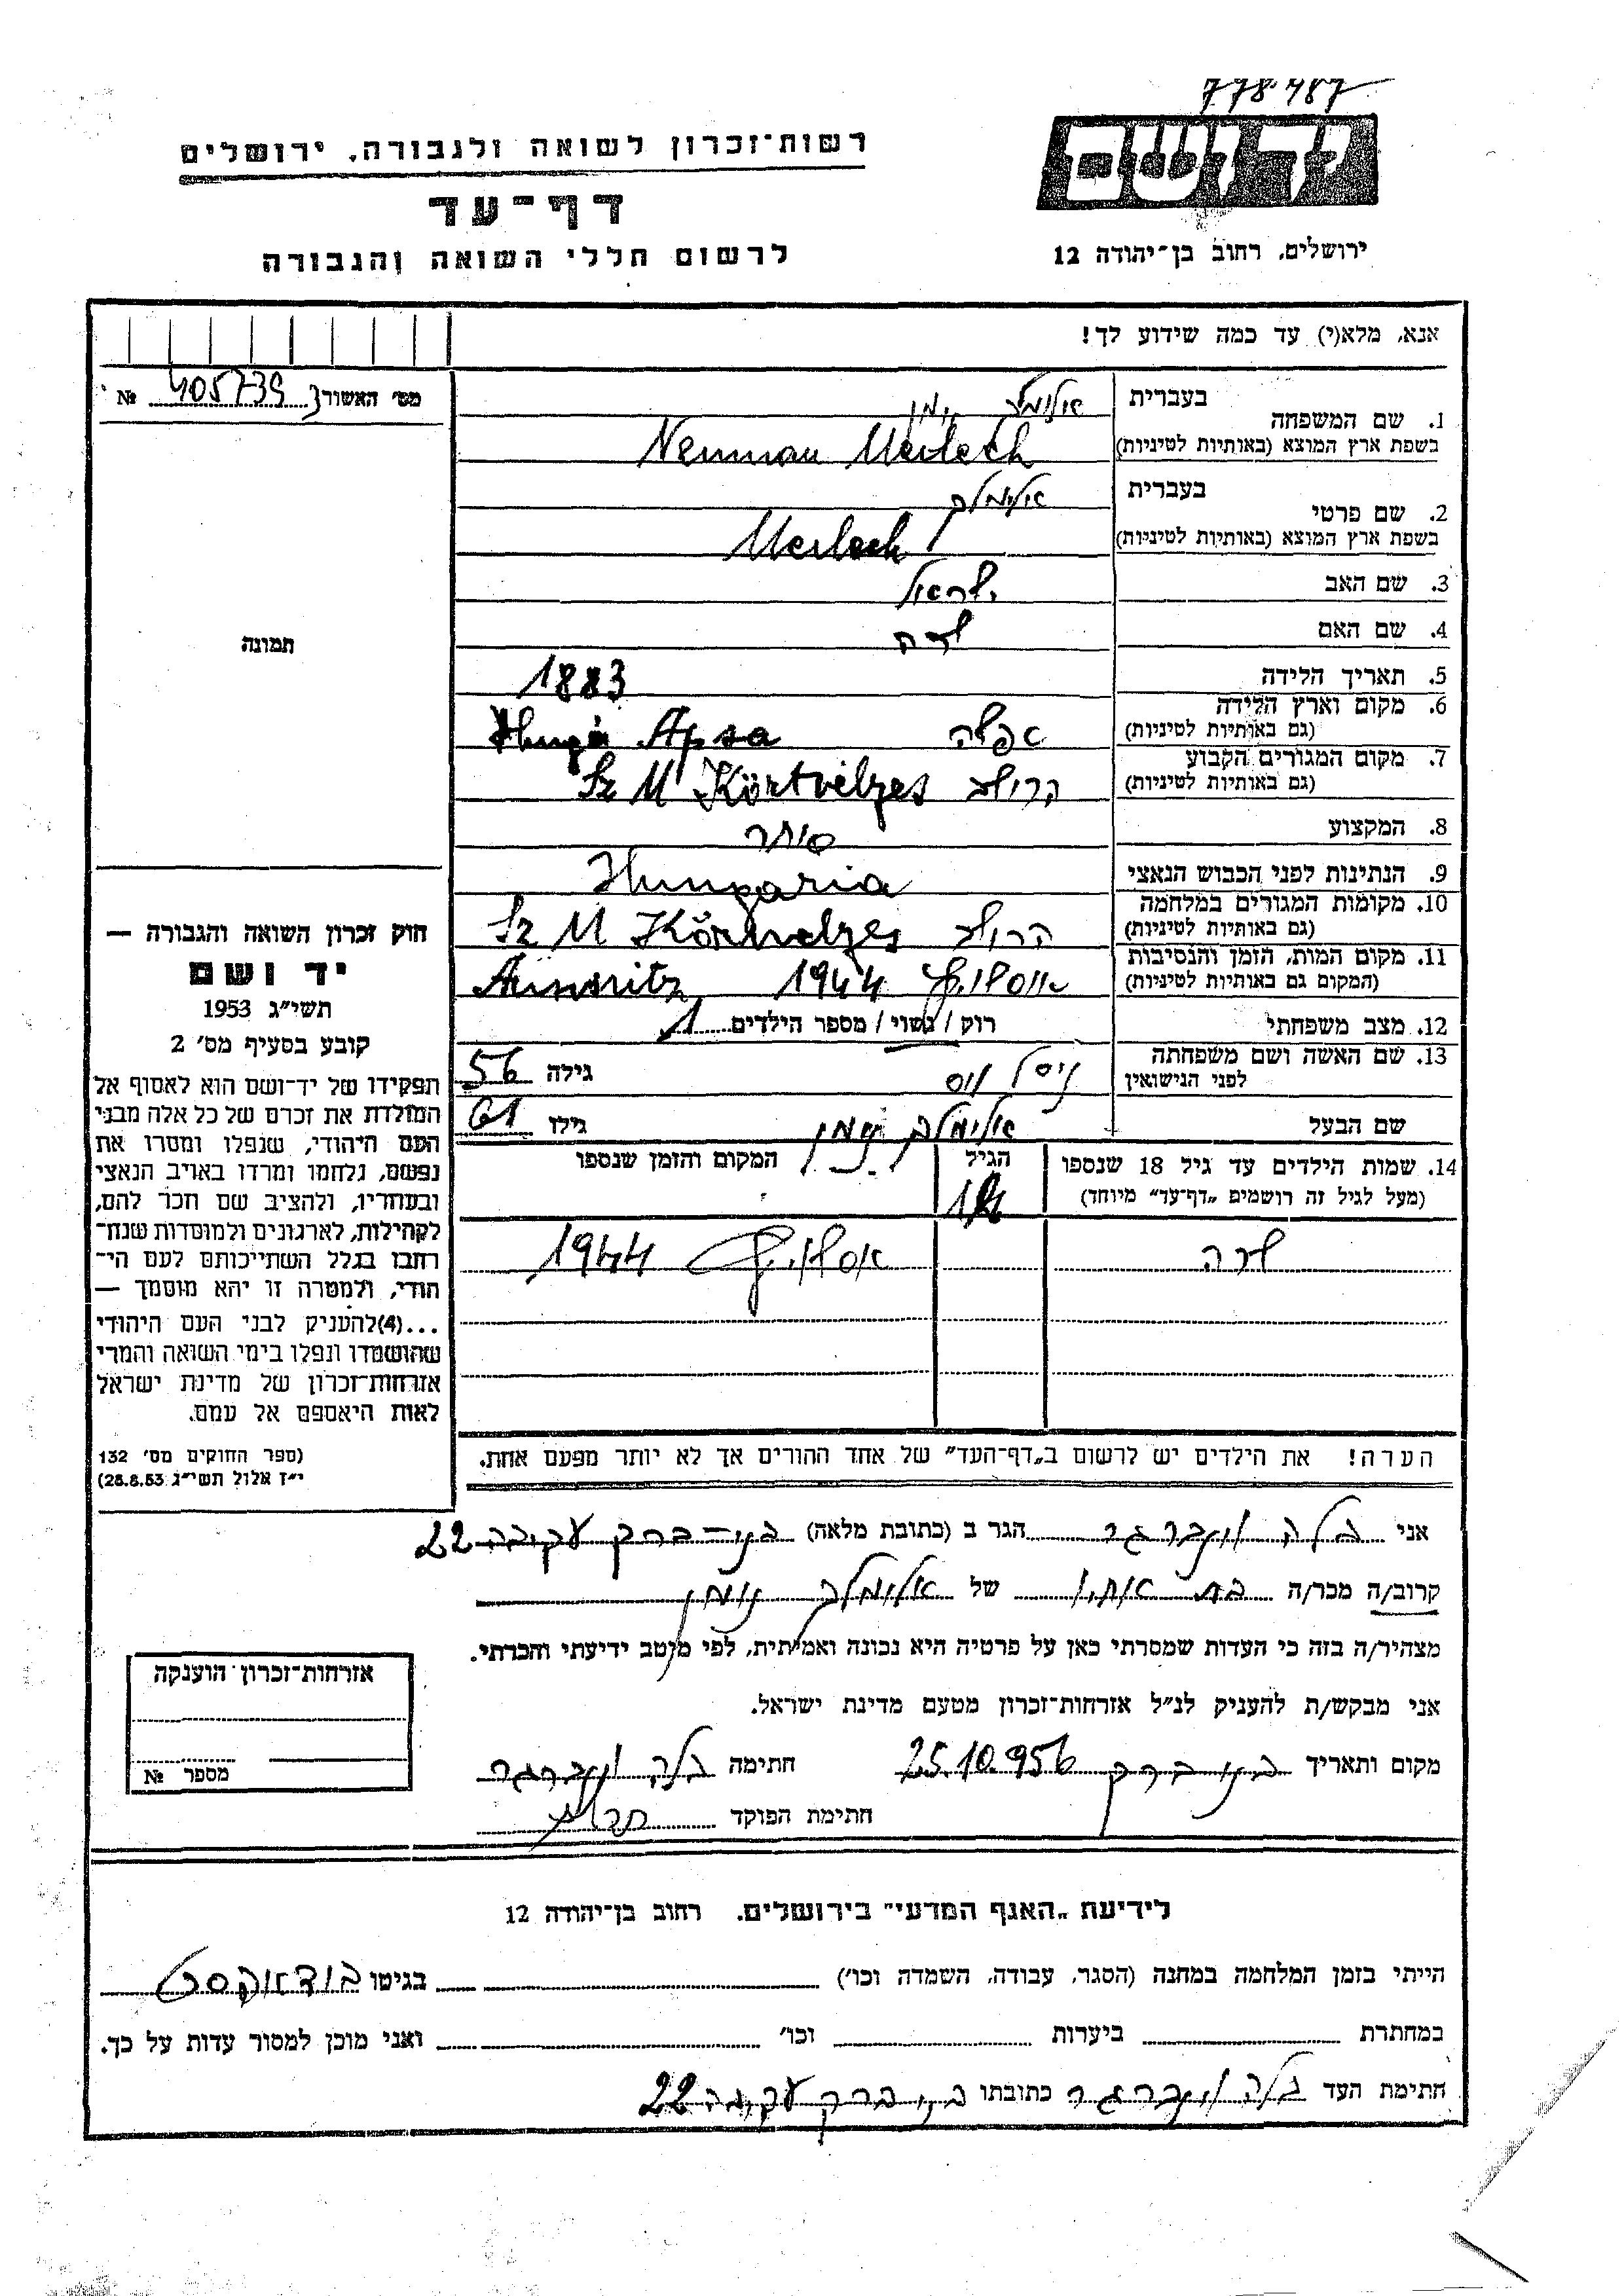 778487
יד ושם
רשות־זכרון לשואה ולגבורה, ירושלים
דף־עד
לרשום חללי השואה והגבורה
ירושלים, רחוב בן־יהודה 12
אנא, מלא(י) עד כמה שידוע לך!
מס׳ האשור № 405739
1. שם המשפחה בעברית
בשפת ארץ המוצא (באותיות לטיניות) Neuman Meilech
2. שם פרטי בעברית אלימלך
בשפת ארץ המוצא (באותיות לטיניות) Meilech
3. שם האב ישראל
4. שם האם שרה
5. תאריך הלידה 1883
6. מקום וארץ הלידה (גם באותיות לטיניות) אפשה Apsa
7. מקום המגורים הקבוע (גם באותיות לטיניות) Sz M Körtvélyes
8. המקצוע סוחר
9. הנתינות לפני הכבוש הנאצי Hungaria
10. מקומות המגורים במלחמה (גם באותיות לטיניות) Sz M Körtvelyes
11. מקום המות, הזמן והנסיבות (המקום גם באותיות לטיניות) 1944
12. מצב משפחתי רוק / נשוי / מספר הילדים 1
13. שם האשה ושם משפחתה לפני הנישואין גילה 56
שם הבעל אלימלך נוימן גילו 61
14. שמות הילדים עד גיל 18 שנספו הגיל המקום והזמן שנספו
(מעל לגיל זה רושמים „דף־עד״ מיוחד)
שרה 1944
הערה! את הילדים יש לרשום ב„דף־העד״ של אחד ההורים אך לא יותר מפעם אחת.
תמונה
חוק זכרון השואה והגבורה —
יד ושם
תשי״ג 1953
קובע בסעיף מס׳ 2
תפקידו של יד־ושם הוא לאסוף אל
המולדת את זכרם של כל אלה מבני
העם היהודי, שנפלו ומסרו את
נפשם, נלחמו ומרדו באויב הנאצי
ובעוזריו, ולהציב שם וזכר להם,
לקהילות, לארגונים ולמוסדות שנח־
רבו בגלל השתייכותם לעם הי־
הודי, ולמטרה זו יהא מוסמך —
...(4)להעניק לבני העם היהודי
שהושמדו ונפלו בימי השואה והמרי
אזרחות־זכרון של מדינת ישראל
לאות היאספם אל עמם.
(ספר החוקים מס׳ 132
י״ז אלול תשי״ג 28.8.53)
אני בלה וינברגר הגר ב (כתובת מלאה) בני־ברק עקיבה 22
קרוב/ה מכר/ה בת אחיו של אלימלך נוימן
מצהיר/ה בזה כי העדות שמסרתי כאן על פרטיה היא נכונה ואמיתית, לפי מיטב ידיעתי והכרתי.
אני מבקש/ת להעניק לנ״ל אזרחות־זכרון מטעם מדינת ישראל.
מקום ותאריך בני ברק 25.10.956 חתימה בלה וינברגר
חתימת הפוקד
אזרחות־זכרון הוענקה
מספר №
לידיעת „האגף המדעי״ בירושלים, רחוב בן־יהודה 12
הייתי בזמן המלחמה במחנה (הסגר, עבודה, השמדה וכו׳) בגיטו בודאפסט
במחתרת ביערות וכו׳ ואני מוכן למסור עדות על כך.
חתימת העד בלה וינברגר כתובתו בני ברק עקיבה 22